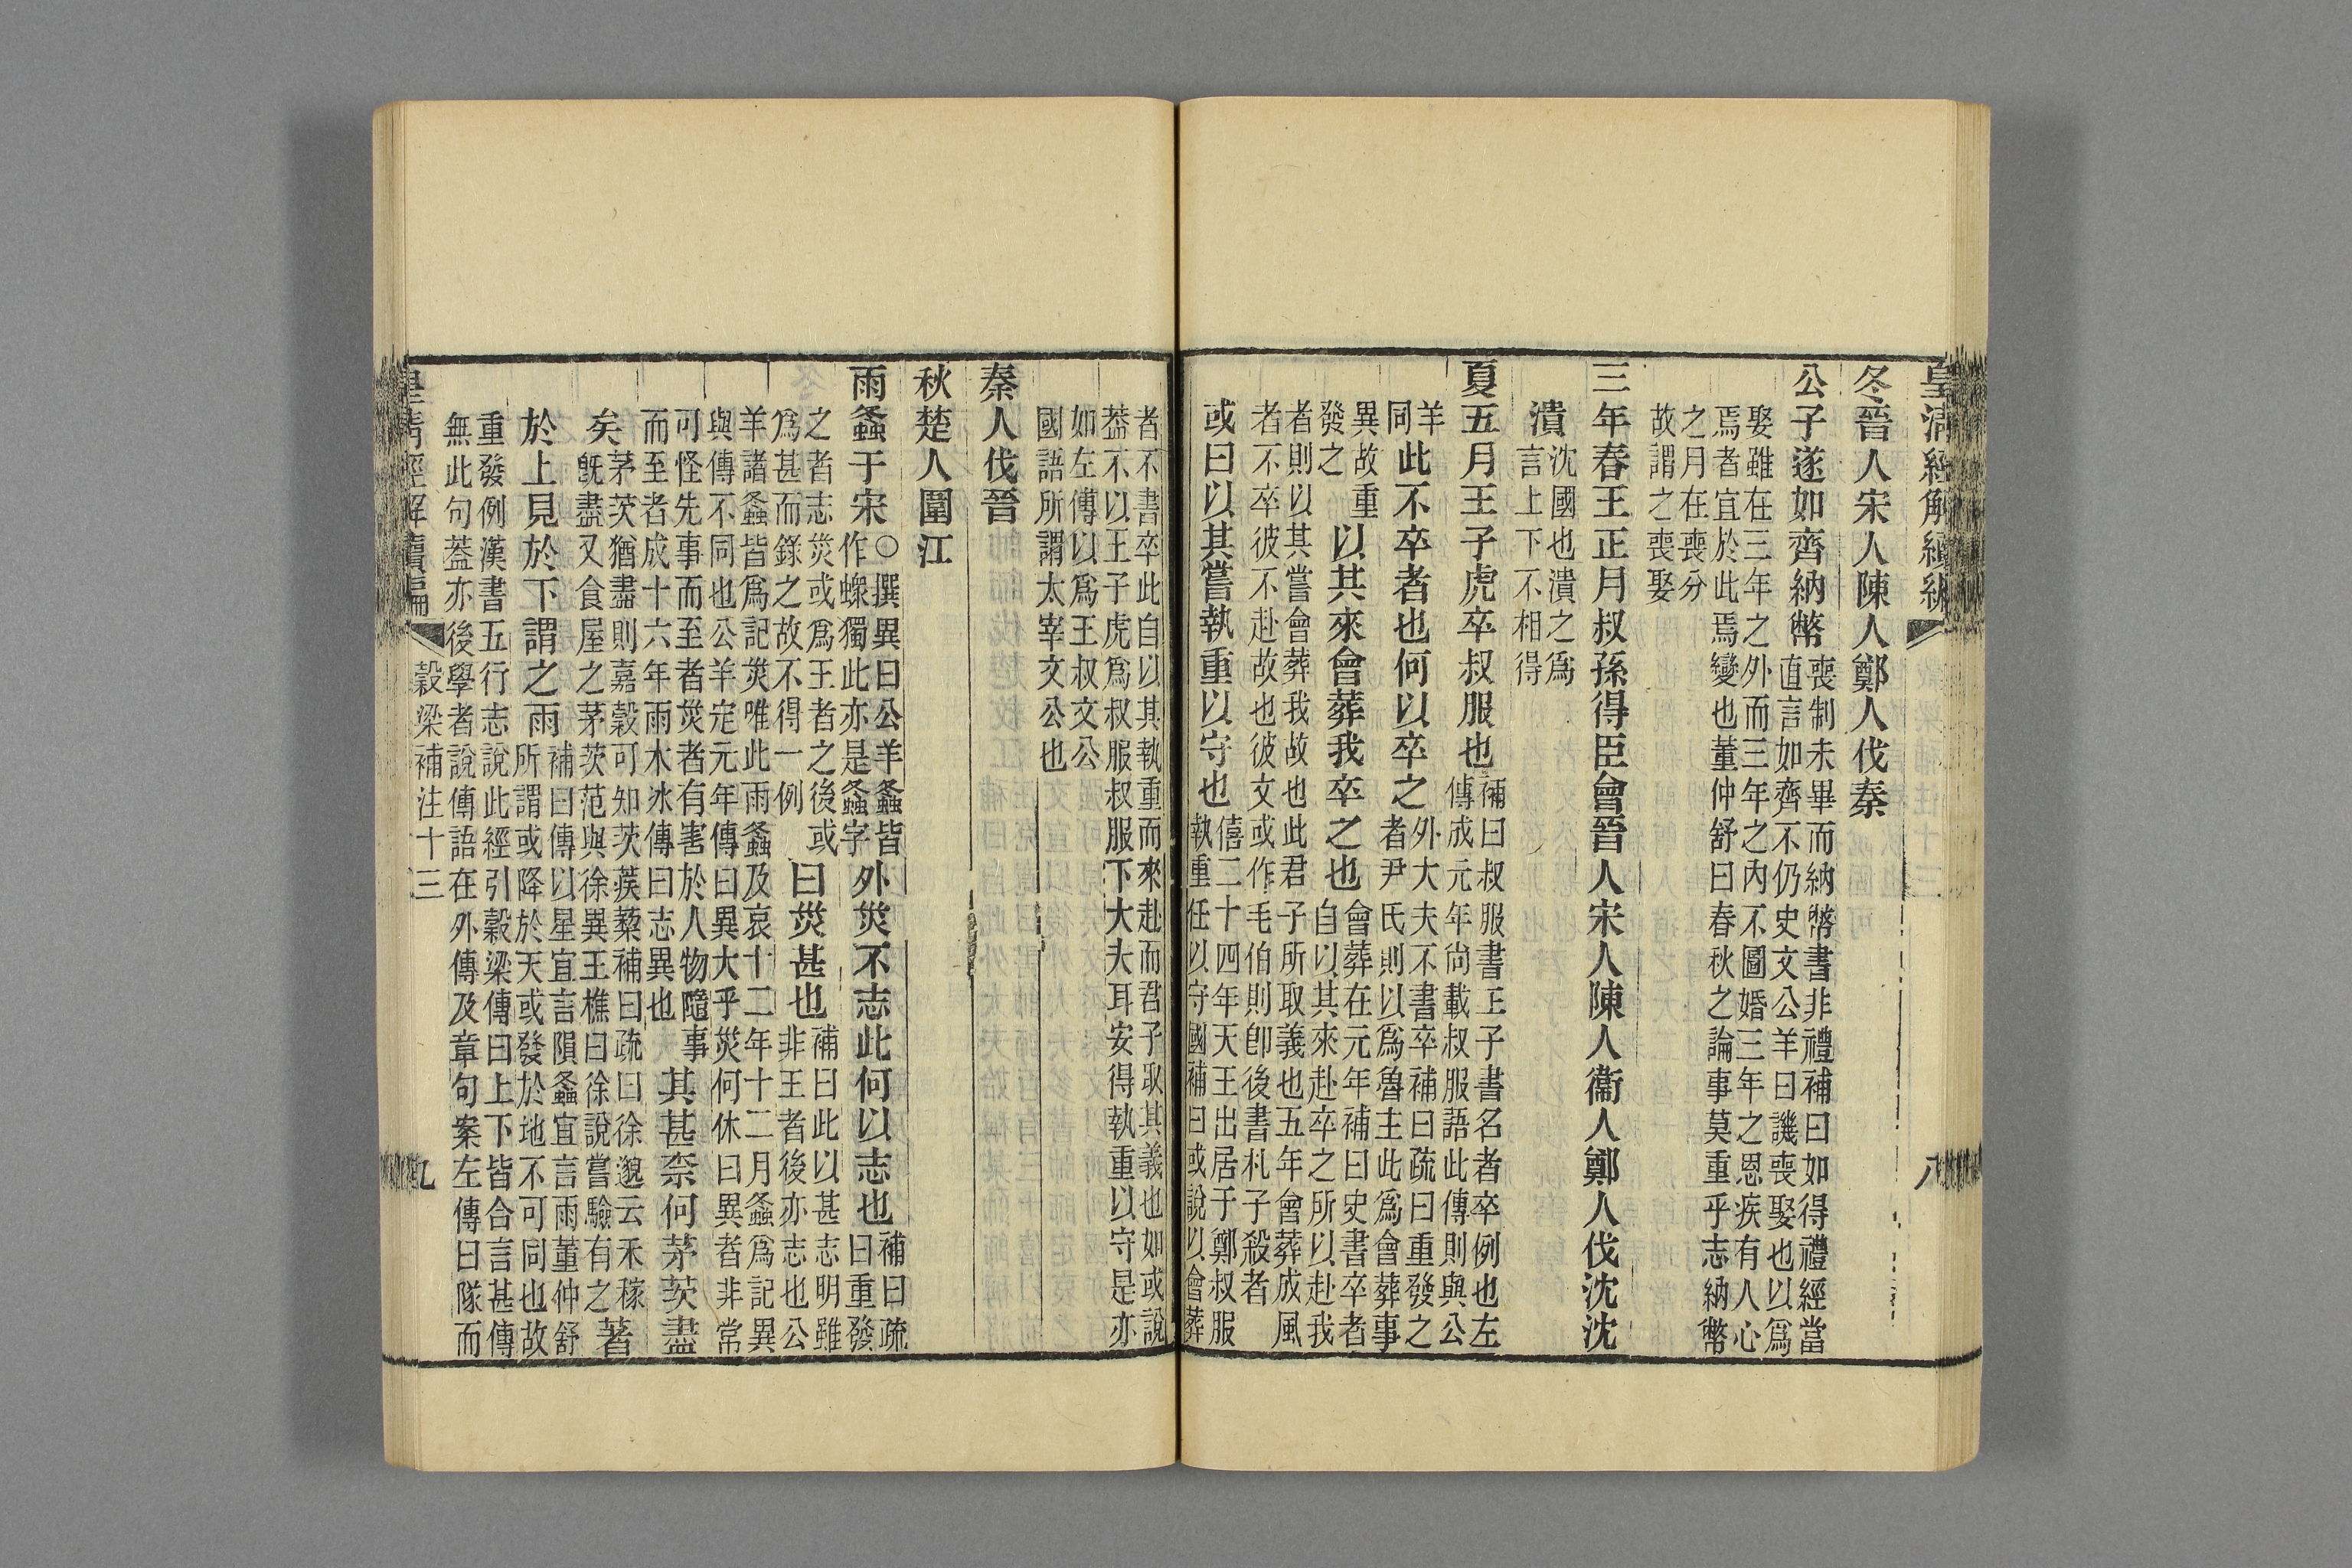 皇清經解續編
八
冬晉人宋人陳人鄭人伐秦
公子遂如齊納幣喪制未畢而納幣書非禮補曰如得禮經當
直言如齊不仍史文公羊曰譏喪娶也以爲
娶雖在三年之外而三年之內不圖婚三年之恩疾有人心
焉者宜於此焉變也董仲舒曰春秋之論事莫重乎志納幣
之月在喪分
故謂之喪娶
三年春王正月叔孫得臣會晉人宋人陳人衞人鄭人伐沈沈
潰沈國也潰之爲
言上下不相得
夏五月王子虎卒叔服也補曰叔服書王子書名者卒例也左
傳成元年尙載叔服語此傳則與公
羊
同此不卒者也何以卒之外大夫不書卒補曰疏曰重發之
者尹氏則以爲魯主此爲會葬事
異故重
發之以其來會葬我卒之也會葬在元年補曰史書卒者
自以其來赴卒之所以赴我
者則以其嘗會葬我故也此君子所取義也五年會葬成風
者不卒彼不赴故也彼文或作毛伯則卽後書札子殺者
或曰以其嘗執重以守也僖二十四年天王出居于鄭叔服
執重任以守國補曰或說以會葬
者不書卒此自以其執重而來赴而君子取其義也如或說
葢不以王子虎爲叔服叔服下大夫耳安得執重以守是亦
如左傳以爲王叔文公
國語所謂太宰文公也
秦人伐晉
秋楚人圍江
雨螽于宋○撰異曰公羊螽皆
作蝝獨此亦是螽字外災不志此何以志也補曰疏
曰重發
之者志災或爲王者之後或
爲甚而錄之故不得一例曰災甚也補曰此以甚志明雖
非王者後亦志也公
羊諸螽皆爲記災唯此雨螽及哀十二年十二月螽爲記異
與傳不同也公羊定元年傳曰異大乎災何休曰異者非常
可怪先事而至者災者有害於人物隨事
而至者成十六年雨木冰傳曰志異也其甚奈何茅茨盡
矣茅茨猶盡則嘉穀可知茨蒺藜補曰疏曰徐邈云禾稼
旣盡又食屋之茅茨范與徐異王樵曰徐說嘗驗有之著
於上見於下謂之雨補曰傳以星宜言隕螽宜言雨董仲舒
所謂或降於天或發於地不可同也故
重發例漢書五行志說此經引穀梁傳曰上下皆合言甚傳
無此句葢亦後學者說傳語在外傳及章句案左傳曰隊而
皇清經解續編
穀梁補注十三
九